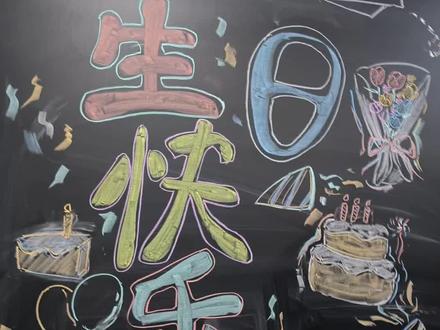 生日
快
乐